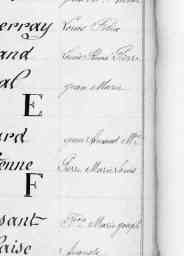 erray Louis Félix
and Louis Pierre
al Jean Marie
E
ard Jean
enne Pierre Marie Louis
F
sant Fçois Marie Joseph
laise Auguste